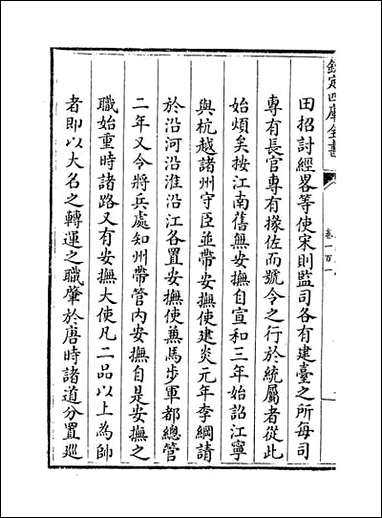 欽定四庫全書
卷一百一
田招討經畧等使宋則監司各有建臺之所每司
專有長官專有掾佐而號令之行於統屬者從此
始煩矣按江南舊無安撫自宣和三年始詔江寧
與杭越諸州守臣並帶安撫使建炎元年李綱請
於沿河沿淮沿江各置安撫使兼馬步軍都總管
二年又令將兵處知州帶管內安撫自是安撫之
職始重時諸路又有安撫大使凡二品以上為帥
者即以大名之轉運之職肇於唐時諸道分置廵